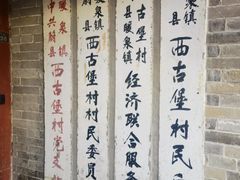 中共蔚县暖泉镇西古堡村党支
县暖泉镇西古堡村村民委员
蔚县暖泉镇西古堡村经济联合服务
暖泉镇西古堡村民